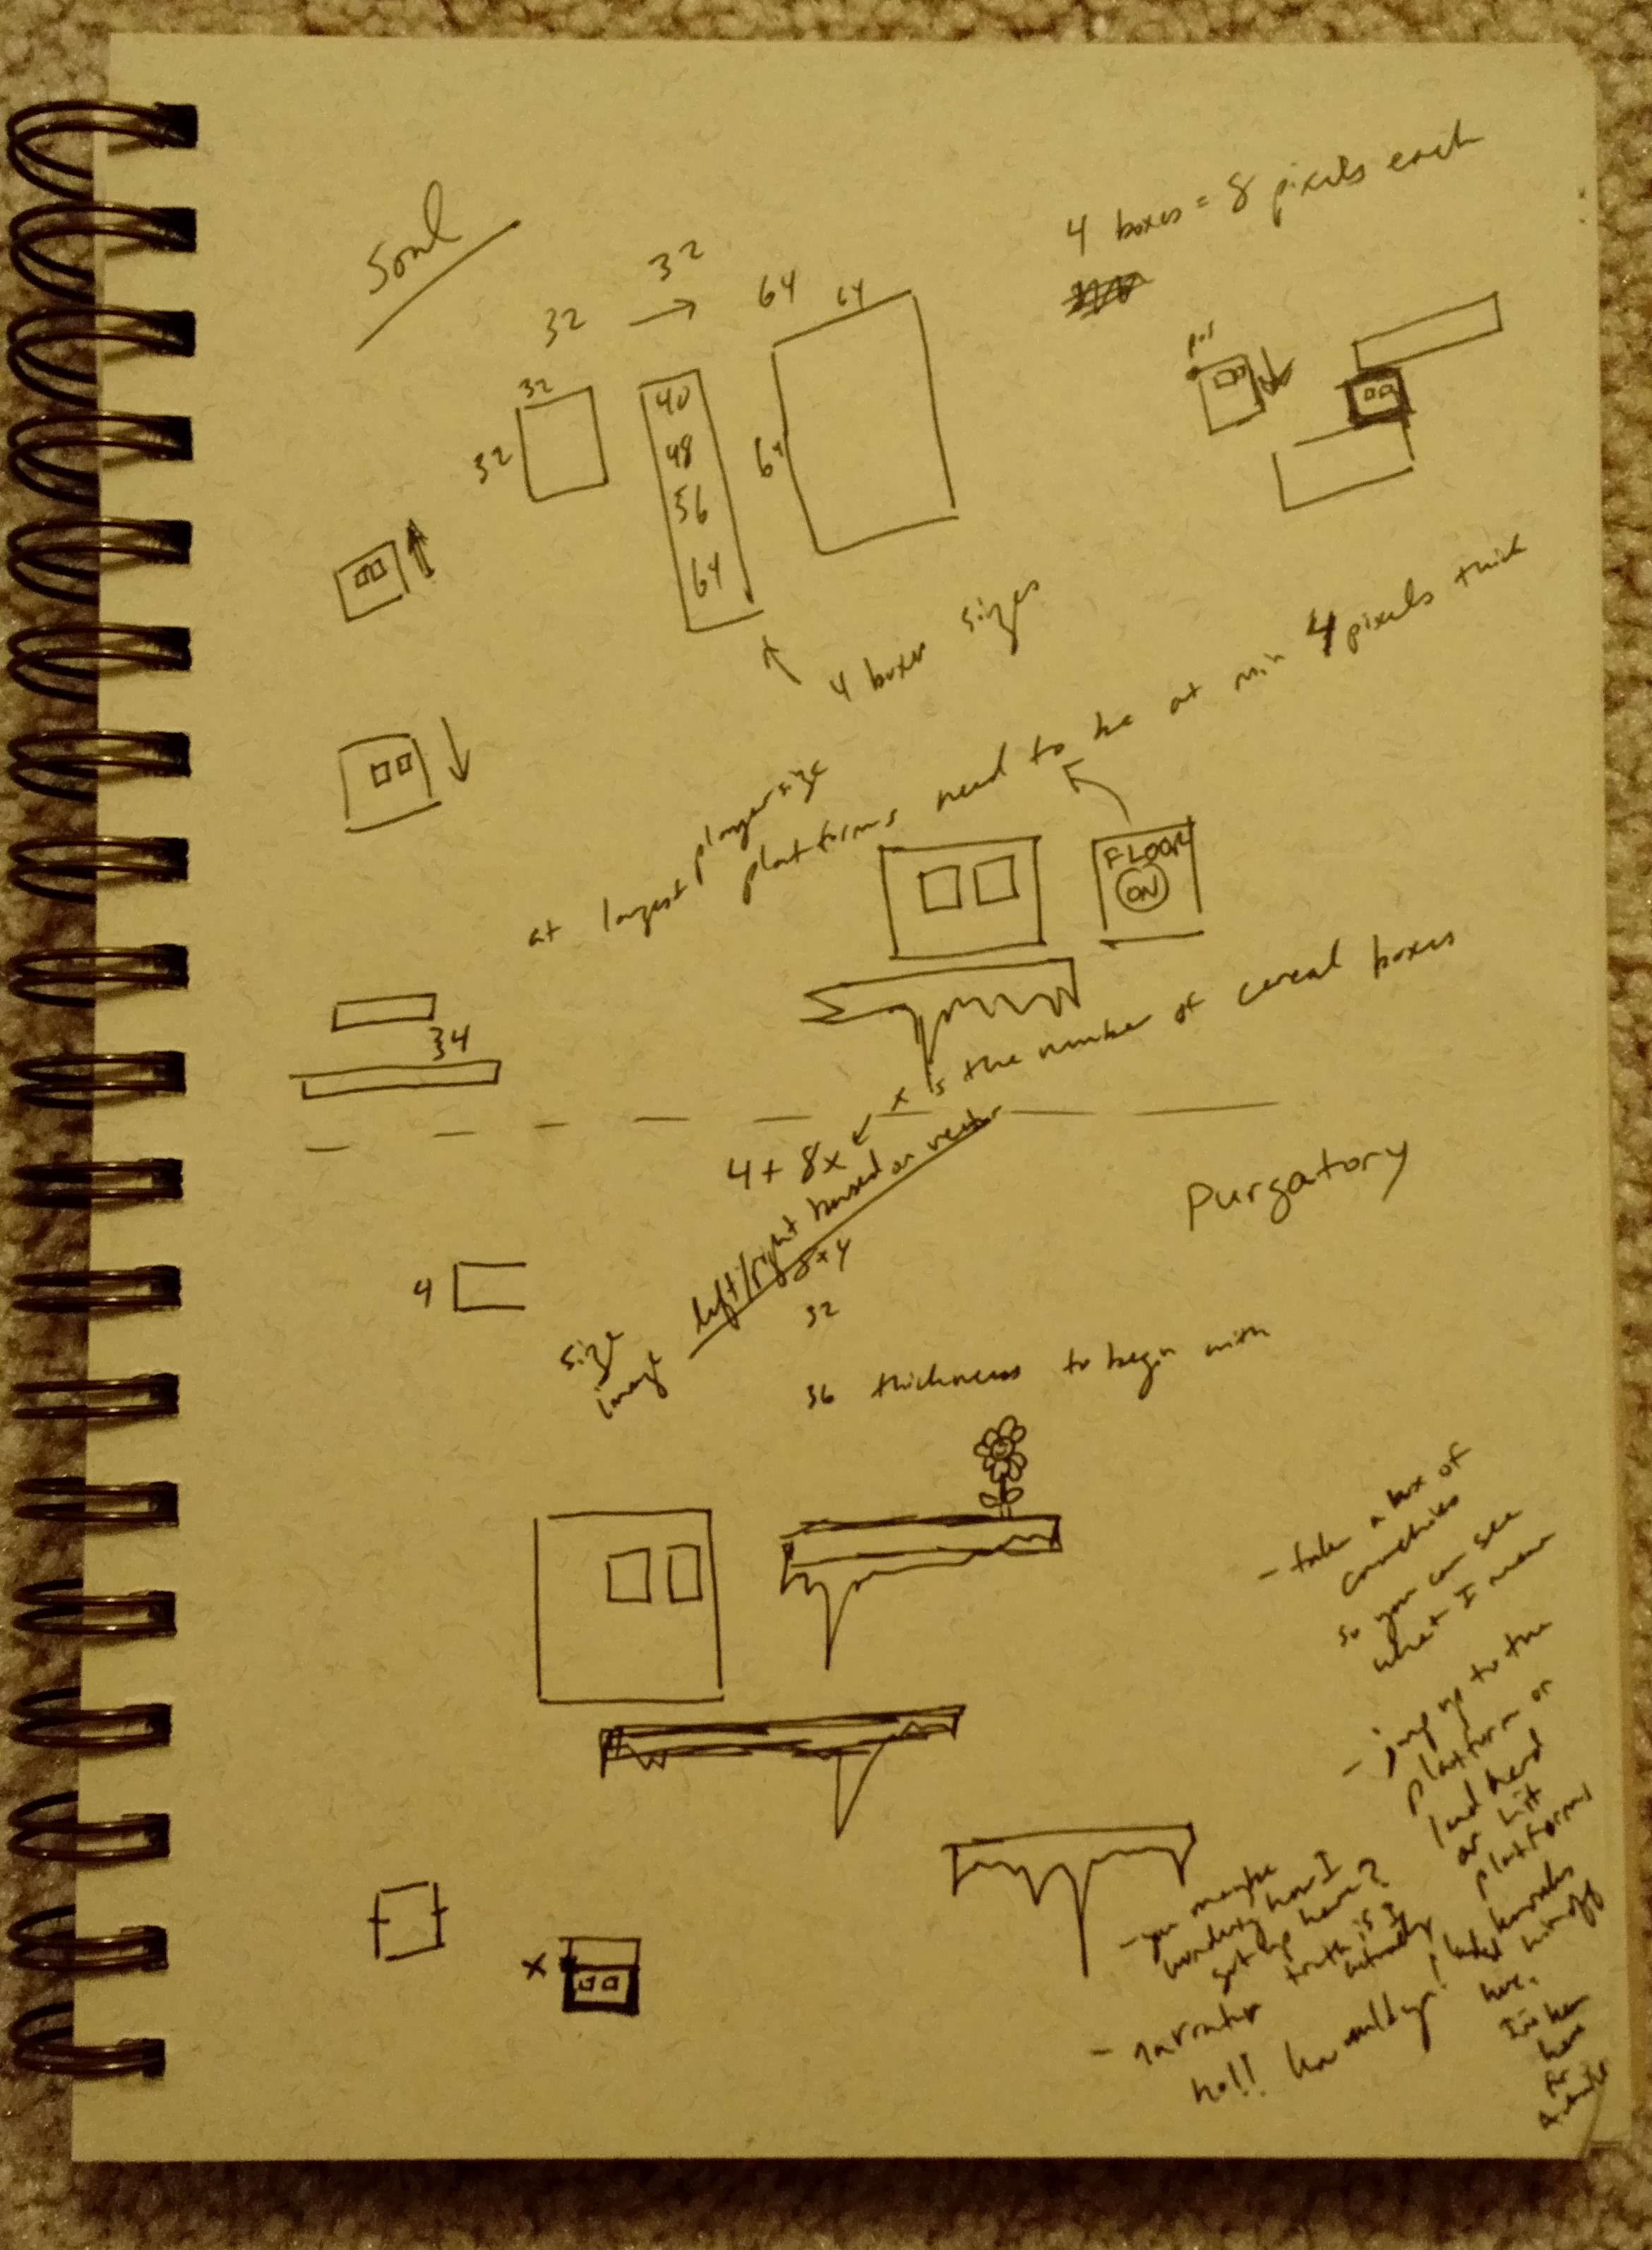 Soul
4 boxes = 8 pixels each
32 → 32
64
64
32
32
40
48
56
64
64
pos
4 boxes sizes
at largest player size
platforms need to be at min 4 pixels thick
FLOOR
ON
34
x is the number of cereal boxes
4 + 8x
left/right based on vector
Purgatory
8 x 4
32
4
size
image
36 thickness to begin with
- take a box of
so you can see
what I mean
- jump up to the
platform or
land hard
or hit
platforms
- you maybe
wondering how I
got up here?
truth is I
actually
here.
- narrator
no!! how could you!
I've been
here
for
a while
x